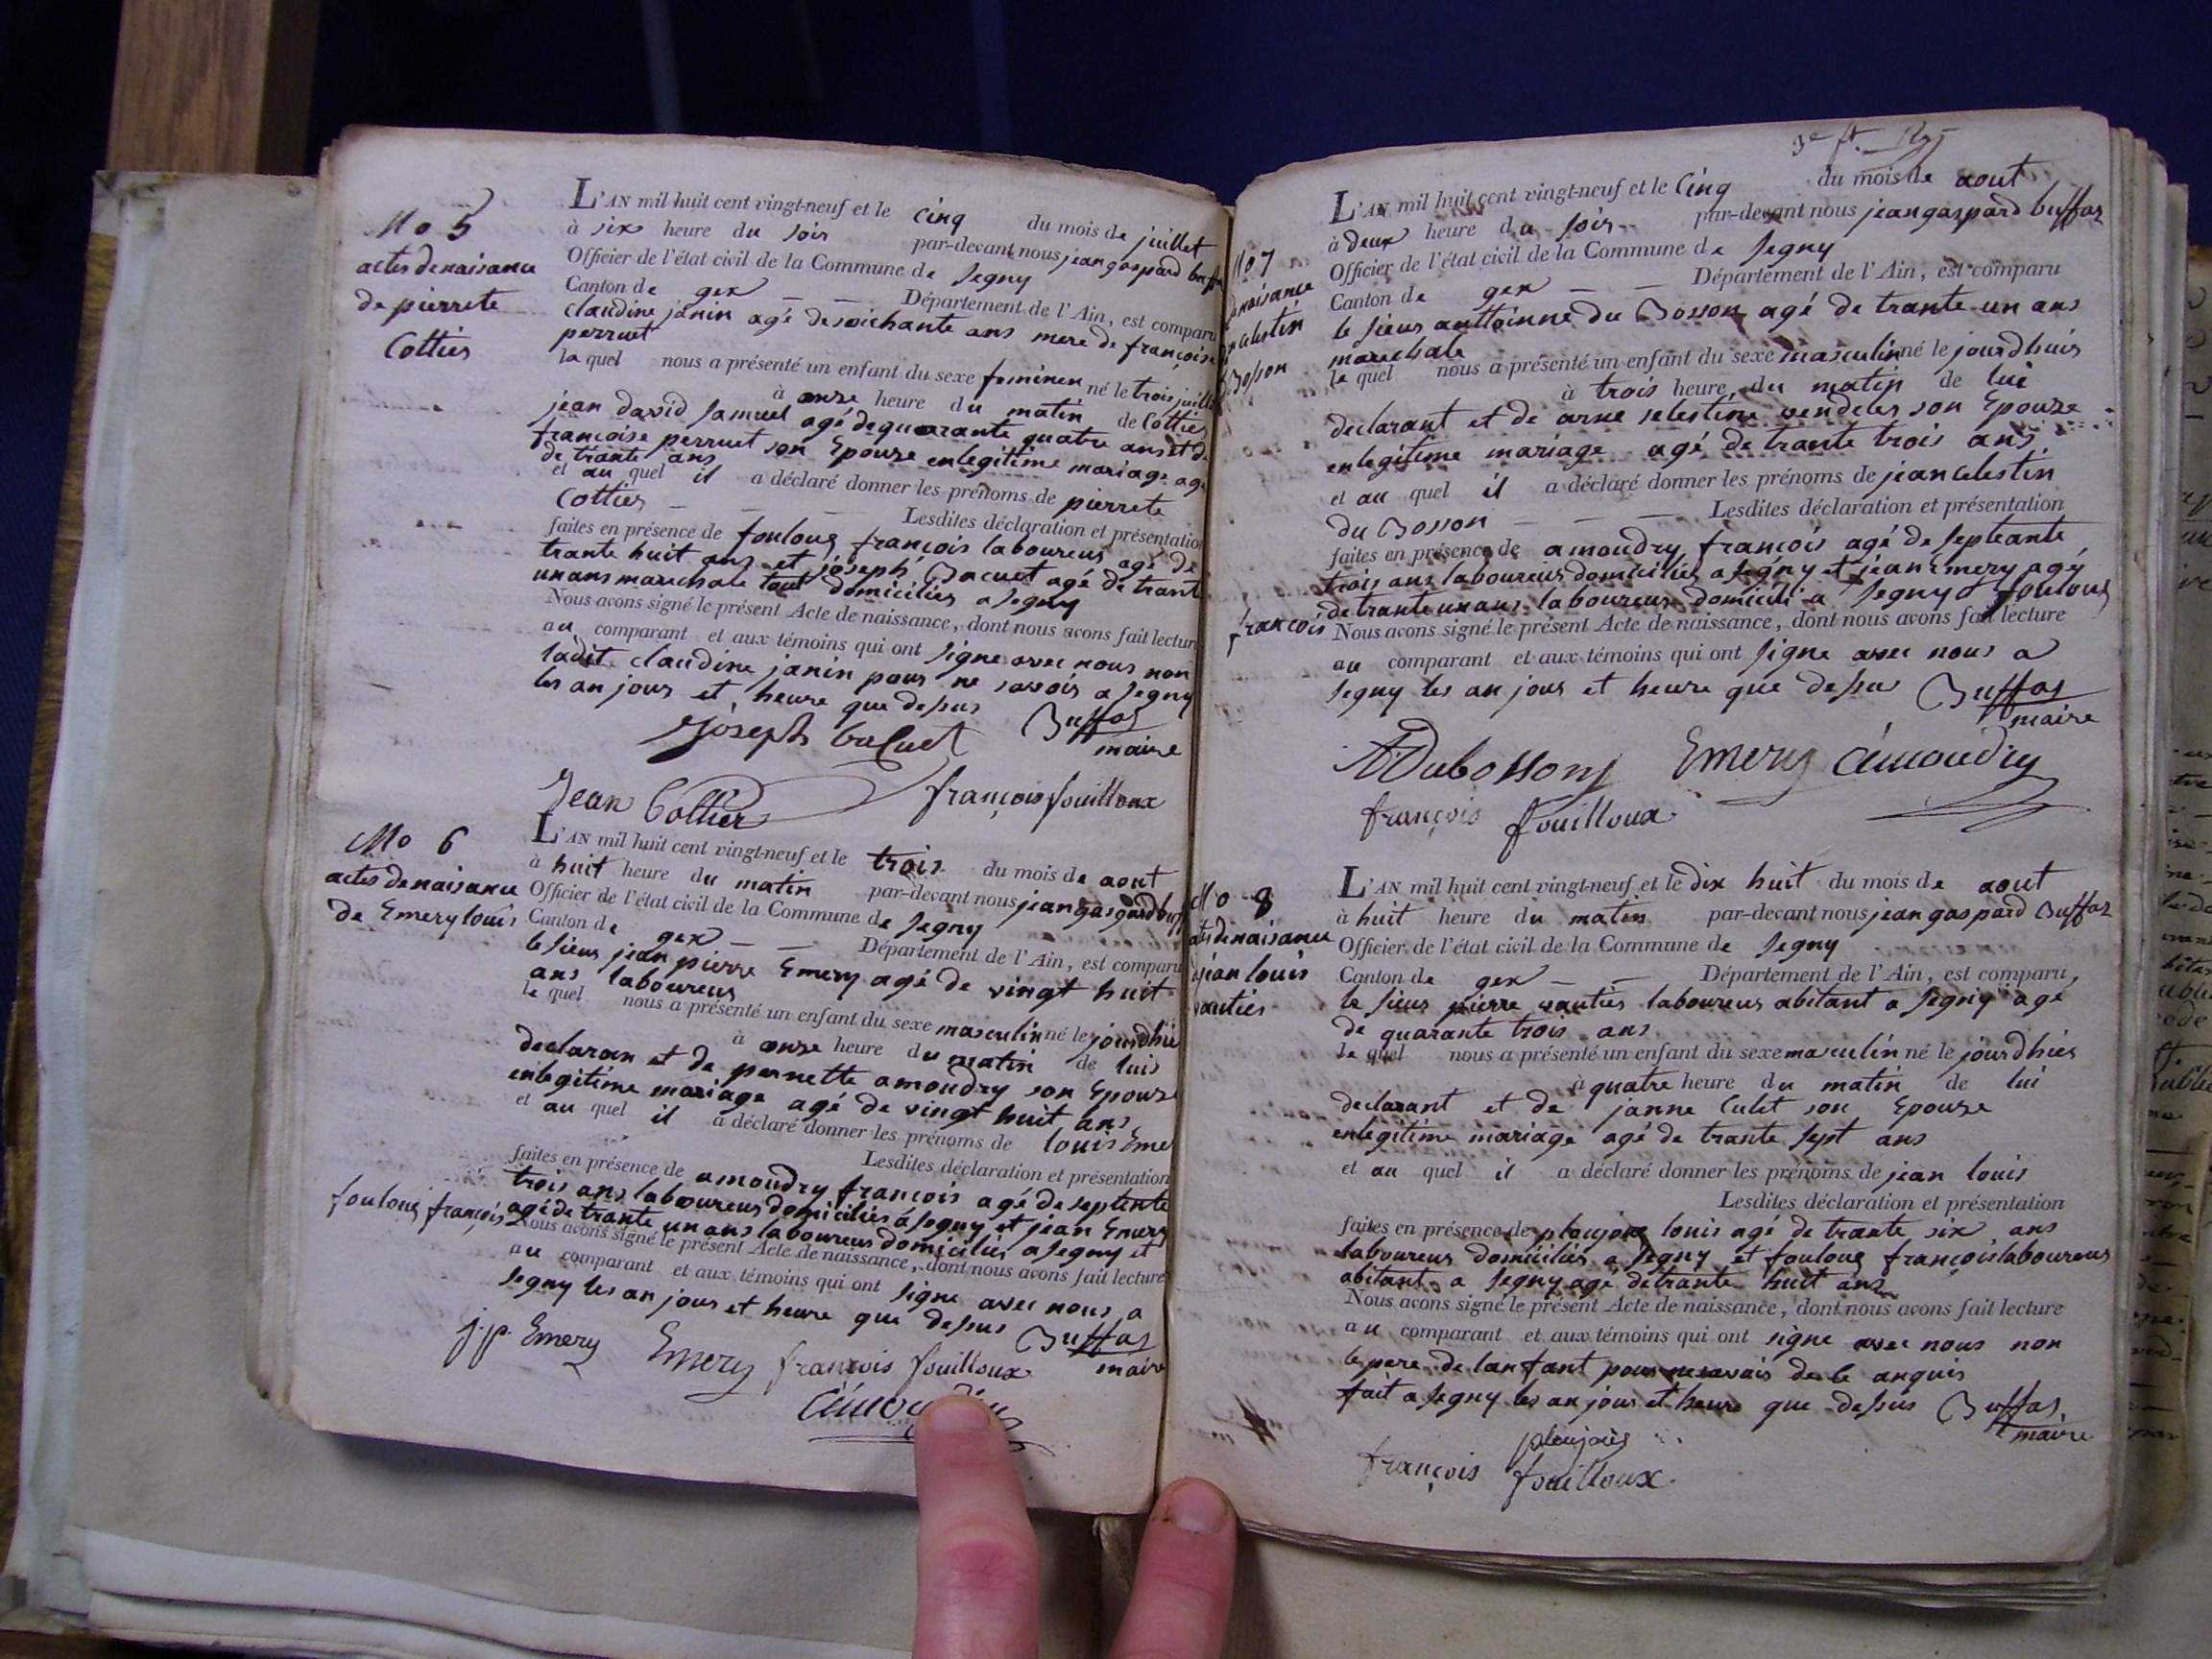 No 5
actes denaisance
de pierrete
Cottier
L'AN mil huit cent vingt-neuf et le cinq du mois de juillet
à six heure du soir par-devant nous jean gaspard buffa
Officier de l'état civil de la Commune de Segny
Canton de gex — — Département de l'Ain, est comparu
claudine janin agé desoichante ans mere de françoise
perruet
la quel nous a présenté un enfant du sexe feminen né le trois juille
à onze heure du matin de Cottier
jean david samuel agé dequarante quatre ans et de
françoise perruet son Epouse enlegitime mariage age
de trante ans
et au quel il a déclaré donner les prénoms de pierrete
Cottier — — — Lesdites déclaration et présentation
faites en présence de fouloux françois laboureur agé de
trante huit ans et joseph Bacuet agé de trante
unans marechale tout domicilier a Segny
Nous avons signé le présent Acte de naissance, dont nous avons fait lecture
au comparant et aux témoins qui ont signe avec nous non
ladit claudine janin pour ne savoir a Segny
les an jour et heure que desus Buffas
maire
Joseph bacuet
Jean Cottier françois fouilloux
No 6
actes denaisance
de Emery louis
L'AN mil huit cent vingt-neuf et le trois du mois de aout
à huit heure du matin par-devant nous jean gaspard buf
Officier de l'état civil de la Commune de Segny
Canton de gex — — Département de l'Ain, est comparu
le sieur jean pierre Emery agé de vingt huit
ans laboureur
le quel nous a présenté un enfant du sexe masculin né le jourdhui
à onze heure du matin de lui
declaran et de pernette amoudry son Epouse
enlegitime mariage agé de vingt huit ans
et au quel il a déclaré donner les prénoms de louis Eme
Lesdites déclaration et présentation
faites en présence de amoudry françois agé de septente
trois ans laboureur domicilier a Segny et jean Emery
agé de trante un ans laboureur domicilier a Segny et
fouloux françois Nous avons signé le présent Acte de naissance, dont nous avons fait lecture
au comparant et aux témoins qui ont signe avec nous a
Segny les an jour et heure que desus Buffas
maire
j.p. Emery Emery françois fouilloux
No 7
denaisance
jean Celestin
du Bosson
L'AN mil huit cent vingt-neuf et le Cinq du mois de aout
à deux heure du soir par-devant nous jean gaspard buffaz
Officier de l'état civil de la Commune de Segny
Canton de gex — — Département de l'Ain, est comparu
le sieur anttoinne du Bosson agé de trante un ans
marechale
le quel nous a présenté un enfant du sexe masculin né le jourdhuis
à trois heure du matin de lui
declarant et de anne selestine vendeler son Epouse
enlegitime mariage agé de trante trois ans
et au quel il a déclaré donner les prénoms de jean Celestin
du Bosson — — — Lesdites déclaration et présentation
faites en présence de amoudry françois agé de septeante
trois ans laboureur domicilier a Segny et jean Emery agé
de trante un ans laboureur domicili a Segny & fouloux
françois Nous avons signé le présent Acte de naissance, dont nous avons fait lecture
au comparant et aux témoins qui ont signe avec nous a
Segny les an jour et heure que desus Buffas
maire
ADubosson Emery amoudry
françois fouilloux
No 8
actes denaisance
jean louis
vautier
L'AN mil huit cent vingt-neuf et le dix huit du mois de aout
à huit heure du matin par-devant nous jean gaspard Buffaz
Officier de l'état civil de la Commune de Segny
Canton de gex — — Département de l'Ain, est comparu
le sieur pierre vautier laboureur abitant a Segny agé
de quarante trois ans
le quel nous a présenté un enfant du sexe masculin né le jourdhies
à quatre heure du matin de lui
declarant et de janne Culet son Epouse
enlegitime mariage agé de trante sept ans
et au quel il a déclaré donner les prénoms de jean louis
Lesdites déclaration et présentation
faites en présence de ploujoux louis agé de trante six ans
laboureur domicilier a Segny et fouloux françois laboureur
abitant a Segny agé detrante huit ans
Nous avons signé le présent Acte de naissance, dont nous avons fait lecture
au comparant et aux témoins qui ont signe avec nous non
le pere de lanfant pour nesavoir de le anquis
fait a Segny les an jour et heure que desus Buffas
maire
ploujoux
françois fouilloux